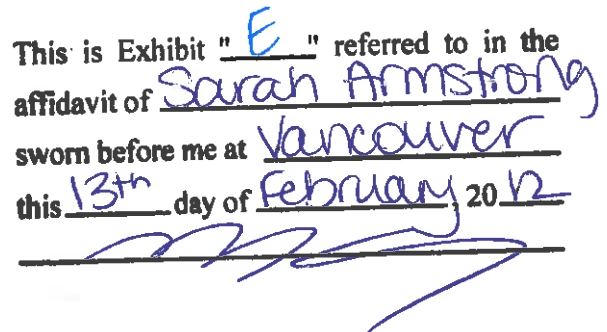 This is Exhibit "E" referred to in the
affidavit of Sarah Armstrong
sworn before me at Vancouver
this 13th day of February, 2012